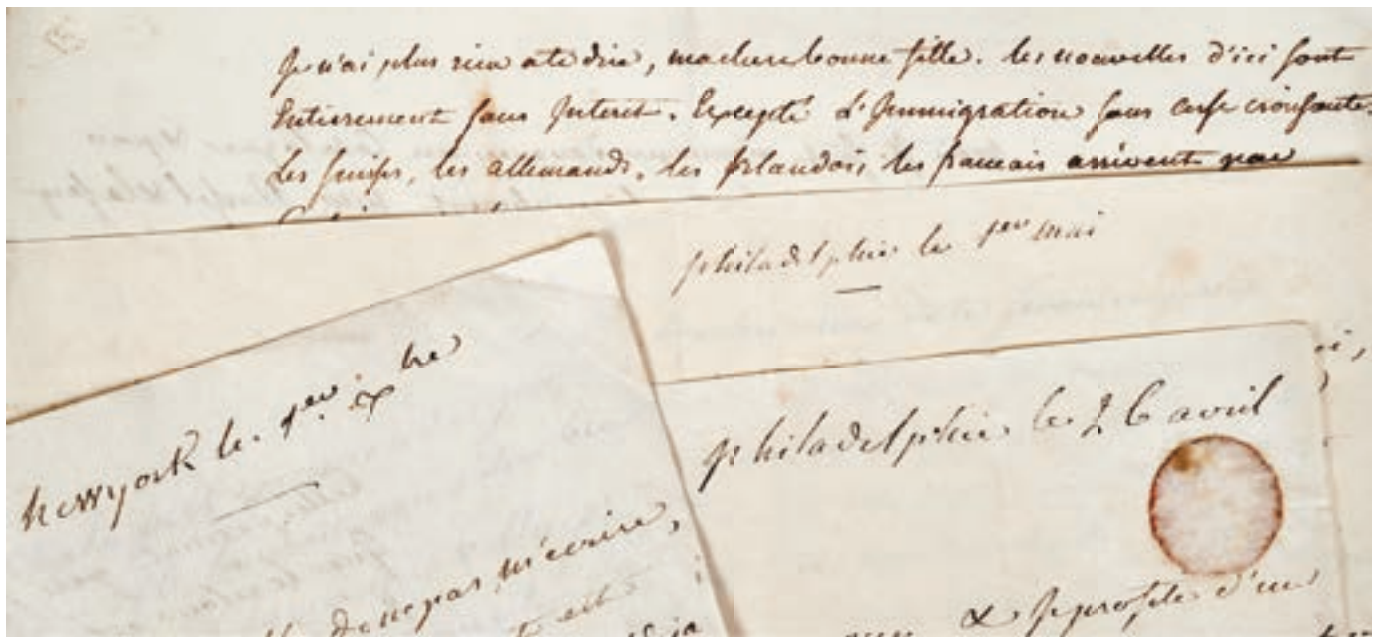 je n'ai plus rien a te dire, ma chere bonne fille. les nouvelles d'ici sont
Entierement sans Interet. Excepté L'Immigration sans cesse croissante.
Les suisses, les allemands, les Irlandois les francais arrivent par
philadelphie le 1er mai
newyork le 1er. xbre
de ne pas m'ecrire,
philadelphie le 26 avril
& je profite d'un